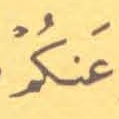 عَنكُمْ